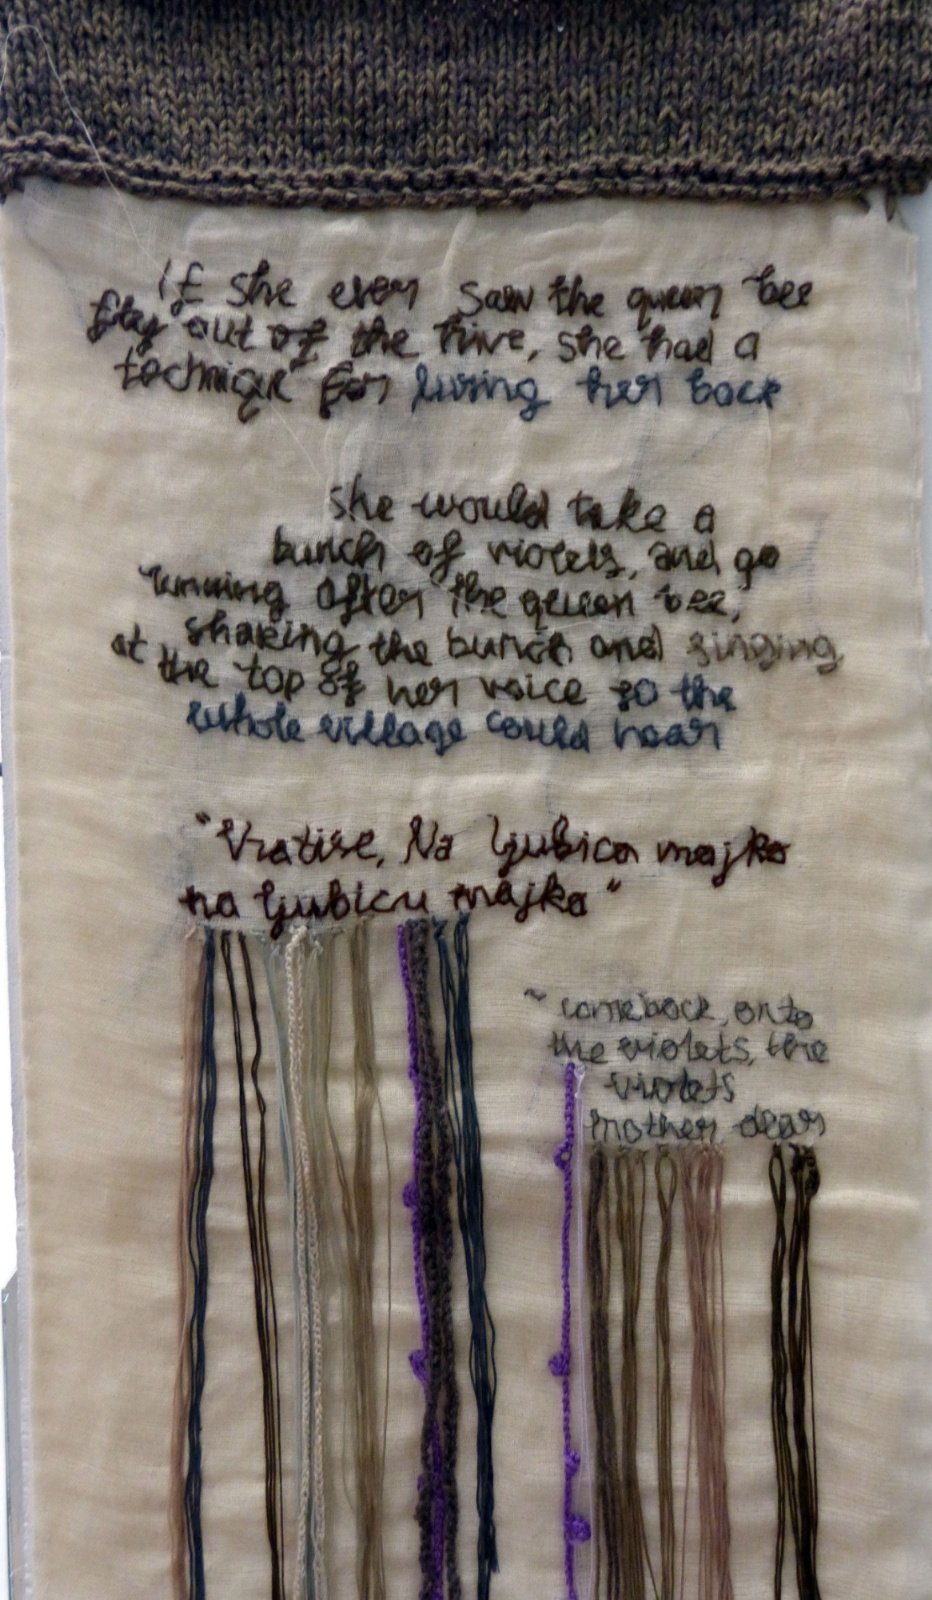 if she ever saw the queen bee
fly out of the hive, she had a
technique for luring her back
she would take a
bunch of violets, and go
running after the queen bee,
shaking the bunch and singing
at the top of her voice so the
whole village could hear
"Vratise, Na ljubica majko
na ljubicu majko"
~ come back, onto
the violets, the
violets
mother dear